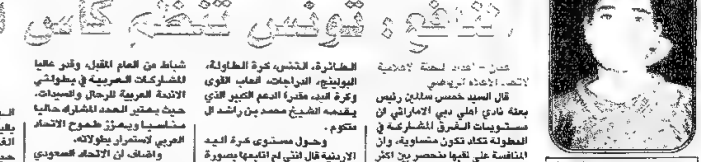 تونس تنظم كأس
عمان - اعداد لجنة الاعلامية
لاتحاد الاعلام الرياضي
قال السيد خميس سالمين رئيس
بعثة نادي أهلي دبي الاماراتي ان
مستويات الفرق المشاركة في
البطولة تكاد تكون متساوية، وان
المنافسة على لقبها منحصر بين اكثر
الطائرة، التنس، كرة الطاولة،
البولينج، الدراجات، العاب القوى
وكرة اليد، مقدرا الدعم الكبير الذي
يقدمه الشيخ محمد بن راشد ال
مكتوم.
وحول مستوى كرة اليد
الاردنية قال انني لم اتابعها بصورة
شباط من العام المقبل، وقدر عاليا
المشاركات العربية في بطولتي
الاندية العربية للرجال والسيدات،
حيث يعتبر العدد المشارك حاليا
مناسبا ويعزز طموح الاتحاد
العربي لاستمرار بطولاته.
واضاف ان الاتحاد السعودي